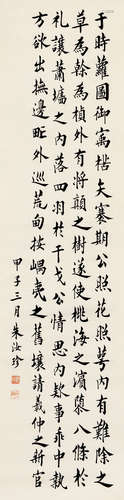 于時蘿圖御寓楛矢褰期公照花照萼內有難除之
草為幹為楨外有將顛之樹遂使桃海之濱隳八條於
礼讓蕭墻之內落四羽於干戈公情思內欵事乖中執
方欲出撫邊甿外巡荒甸按嵎夷之舊壤請羲仲之新官
甲子三月朱汝珍